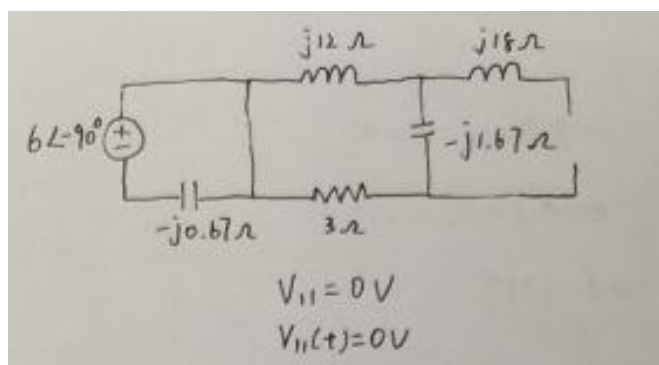 j12 Ω
j18 Ω
6∠-90°
+
−
-j1.67 Ω
-j0.67 Ω
3 Ω
V₁₁ = 0 V
V₁₁(t) = 0 V